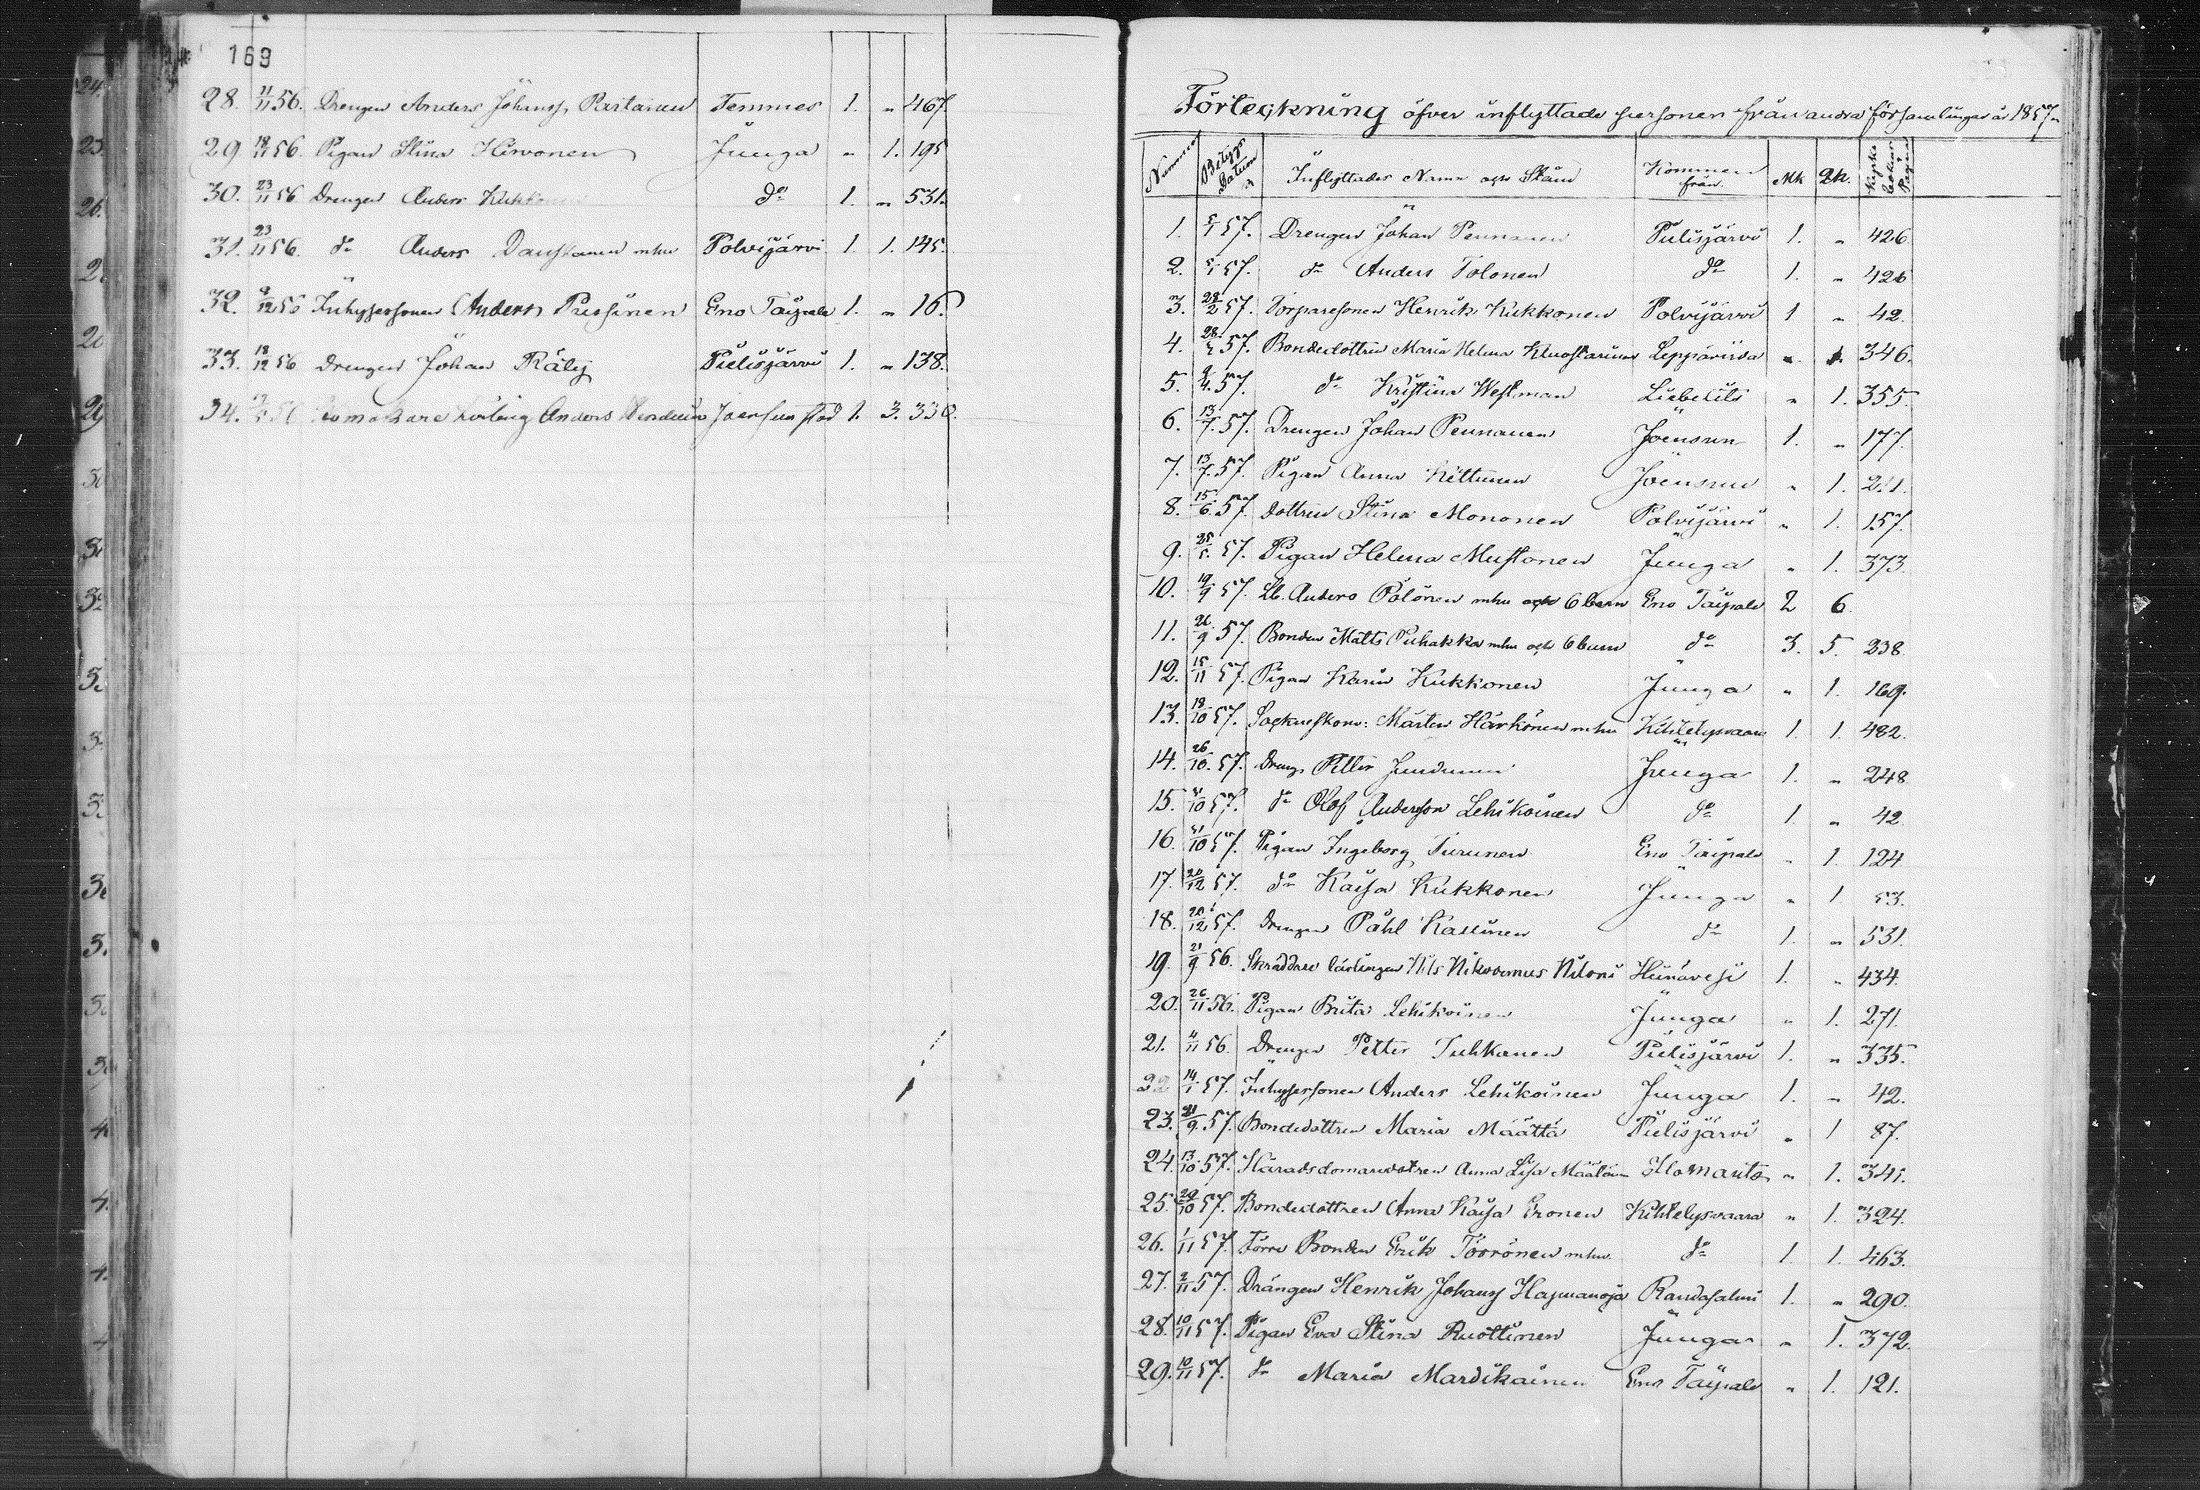 169
28. 11/11 56. Drengen Anders Johanss. Partanen Temmes 1. " 467.
29 18/11 56. Pigan Stina Hirvonen Junga " 1. 195
30. 23/11 56 Drengen Anders Kukkonen do 1. " 531.
31. 23/11 56. do Anders mhu Polvijärvi 1. 1. 145.
32. 9/12 56 Inhyspersonen Anders Pussinen Eno Taipale 1. " 16.
33. 18/12 56 Drengen Johan Räty Pielisjärvi 1. " 138.
34. Anders Joensuu stad 1. 3. 330.
Förteckning öfver inflyttade personer från andra församlingar år 1857.
Nummer Betygets Datum Inflyttades Namn och Stånd Kommen från Mk Qk. Kyrko bokens Pagina
1. 5/1 57. Drengen Johan Pennanen Pielisjärvi 1. " 426
2. 5/1 57. do Anders Tolonen do 1. " 426
3. 22/2 57. Torparesonen Henrik Kukkonen Polvijärvi 1 " 42.
4. 28/2 57. Bondedottren Maria Helena Leppävirta " 1. 346.
5. 9/4 57. do Kristina Westman Liebelits " 1. 355.
6. 13/7 57. Drengen Johan Pennanen Joensuu 1. " 177
7. 13/7 57. Pigan Anna Kettunen Joensuu " 1. 211.
8. 15/6 57. Dottren Stina Mononen Polvijärvi " 1. 157.
9. 25/5 57. Pigan Helena Mustonen Junga " 1. 373
10. 19/9 57. Lb. Anders Polönen mhu och 6 barn Eno Taipale 2 6.
11. 26/9 57. Bonden Matts Puhakka mhu och 6 barn do 3. 5. 238.
12. 15/11 57. Pigan Karin Kukkonen Junga " 1. 169.
13. 18/10 57. Sockneskom: Mårten Härkönen mhu Kihtelysvaara 1. 1. 482.
14. 26/10 57. Dreng. Petter Junga 1. " 248
15. 31/10 57. do Olof Andersson Lehikoinen do 1. " 42
16. 31/10 57. Pigan Ingeborg Turunen Eno Taipale " 1. 124
17. 20/12 57. do Kaisa Kukkonen Junga " 1 53.
18. 20/12 57. Drengen Påhl Kassinen do 1. " 531.
19. 21/9 56. Skräddare lärlingen Nils Nikodemus Heinävesi 1. " 434.
20. 26/11 56. Pigan Brita Lehikoinen Junga " 1. 271.
21. 4/11 56. Drengen Petter Tuhkanen Pielisjärvi 1. " 335.
22 14/1 57. Inhysersonen Anders Lehikoinen Junga 1. " 42.
23. 21/9 57. Bondedottren Maria Määttä Pielisjärvi " 1 87.
24. 13/10 57. Häradsdomaredotren Anna Lisa Ilomants " 1. 341.
25. 29/10 57. Bondedottren Anna Kaisa Eronen Kihtelysvaara " 1. 324.
26. 1/11 57. Förre Bonden Erik Törrönen mhu. do 1 1. 463.
27. 2/11 57. Drängen Henrik Johanss. Hapuanoja Randasalmi 1. " 290.
28. 10/11 57. Pigan Eva Stina Ruottinen Junga " 1. 372.
29. 10/11 57. do Maria Mardikainen Eno Taipale " 1. 121.